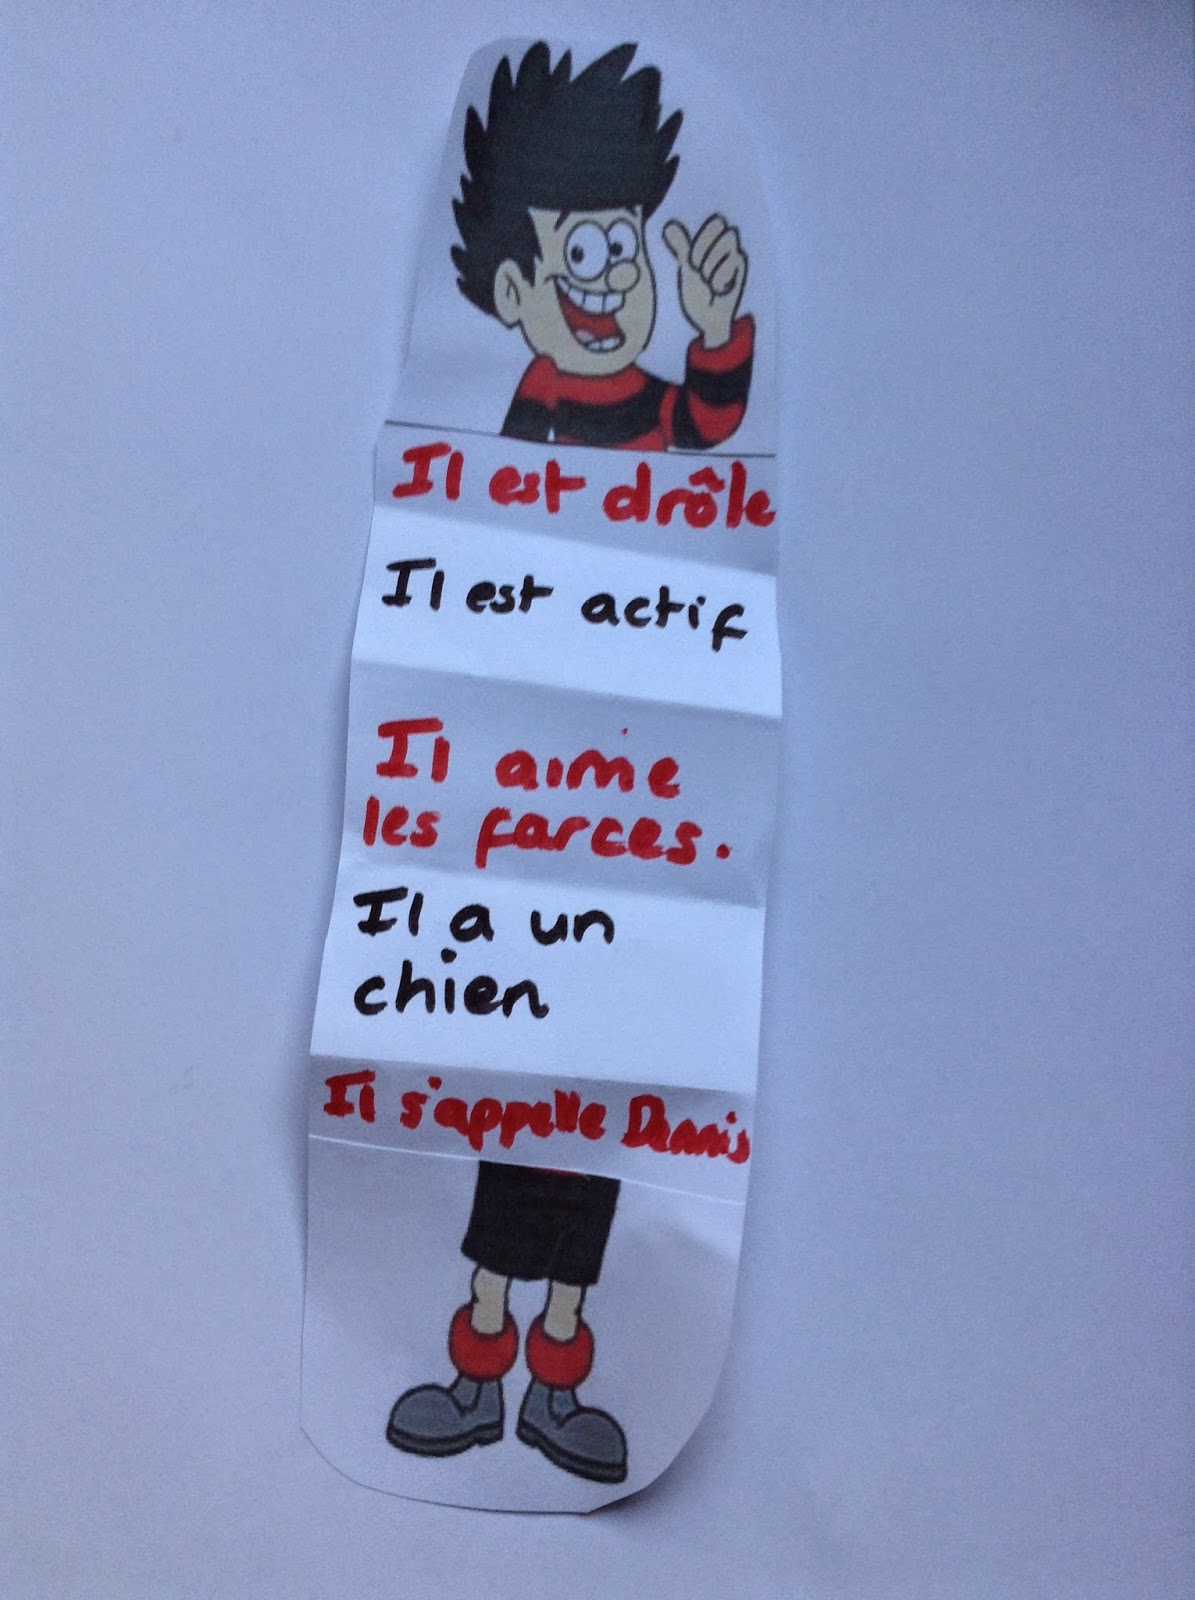 Il est drôle
Il est actif
Il aime
les farces.
Il a un
chien
Il s'appelle Dennis